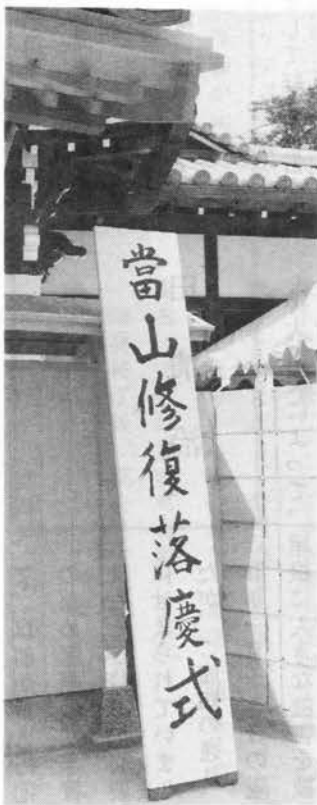 當山修復落慶式